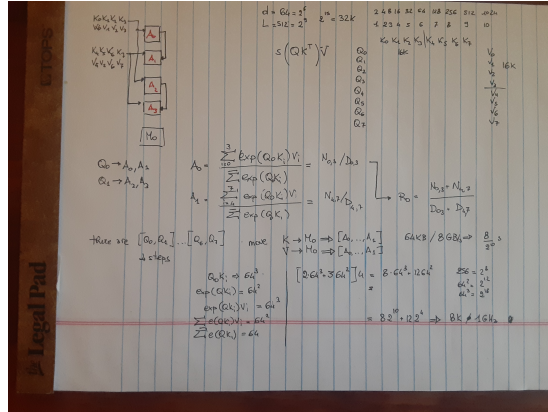 K₀ K₁ K₂ K₃
V₀ V₁ V₂ V₃
K₄ K₅ K₆ K₇
V₄ V₅ V₆ V₇
A₀
A₁
A₂
A₃
M₀
d = 64 = 2⁶
L = 512 = 2⁹
2¹⁵ = 32K
2 4 8 16 32 64 128 256 512 1024
1 2 3 4 5 6 7 8 9 10
S(QKᵀ)V
K₀ K₁ K₂ K₃ K₄ K₅ K₆ K₇
16K
Q₀
Q₁
Q₂
Q₃
Q₄
Q₅
Q₆
Q₇
V₀
V₁
V₂
V₃
V₄
V₅
V₆
V₇
16K
Q₀ → A₀, A₁
Q₁ → A₂, A₃
A₀ = Σ exp(Q₀Kᵢ)Vᵢ / Σ exp(QKᵢ) = N₀,₃ / D₀,₃
A₁ = Σ exp(Q₀Kᵢ)Vᵢ / Σ exp(QKᵢ) = N₄,₇ / D₄,₇
R₀ = N₀,₃ + N₄,₇ / D₀,₃ + D₄,₇
there are [Q₀, Q₁] ... [Q₆, Q₇]
4 steps
move K → M₀ ⇒ [A₀, ..., A₃]
V → M₀ ⇒ [A₀ ... A₃]
64KB / 8GB/s ⇒ 8/2²⁰ s
Q₀Kᵢ ⇒ 64³
exp(QKᵢ) = 64²
exp(QKᵢ)Vᵢ = 64³
Σ e(QK)Vᵢ = 64²
Σ e(QKᵢ) = 64
[2·64³ + 3·64²] 4 = 8·64³ + 12·64²
256 = 2⁸
64² = 2¹²
64³ = 2¹⁸
⇒ 8K
1GHz
Legal Pad